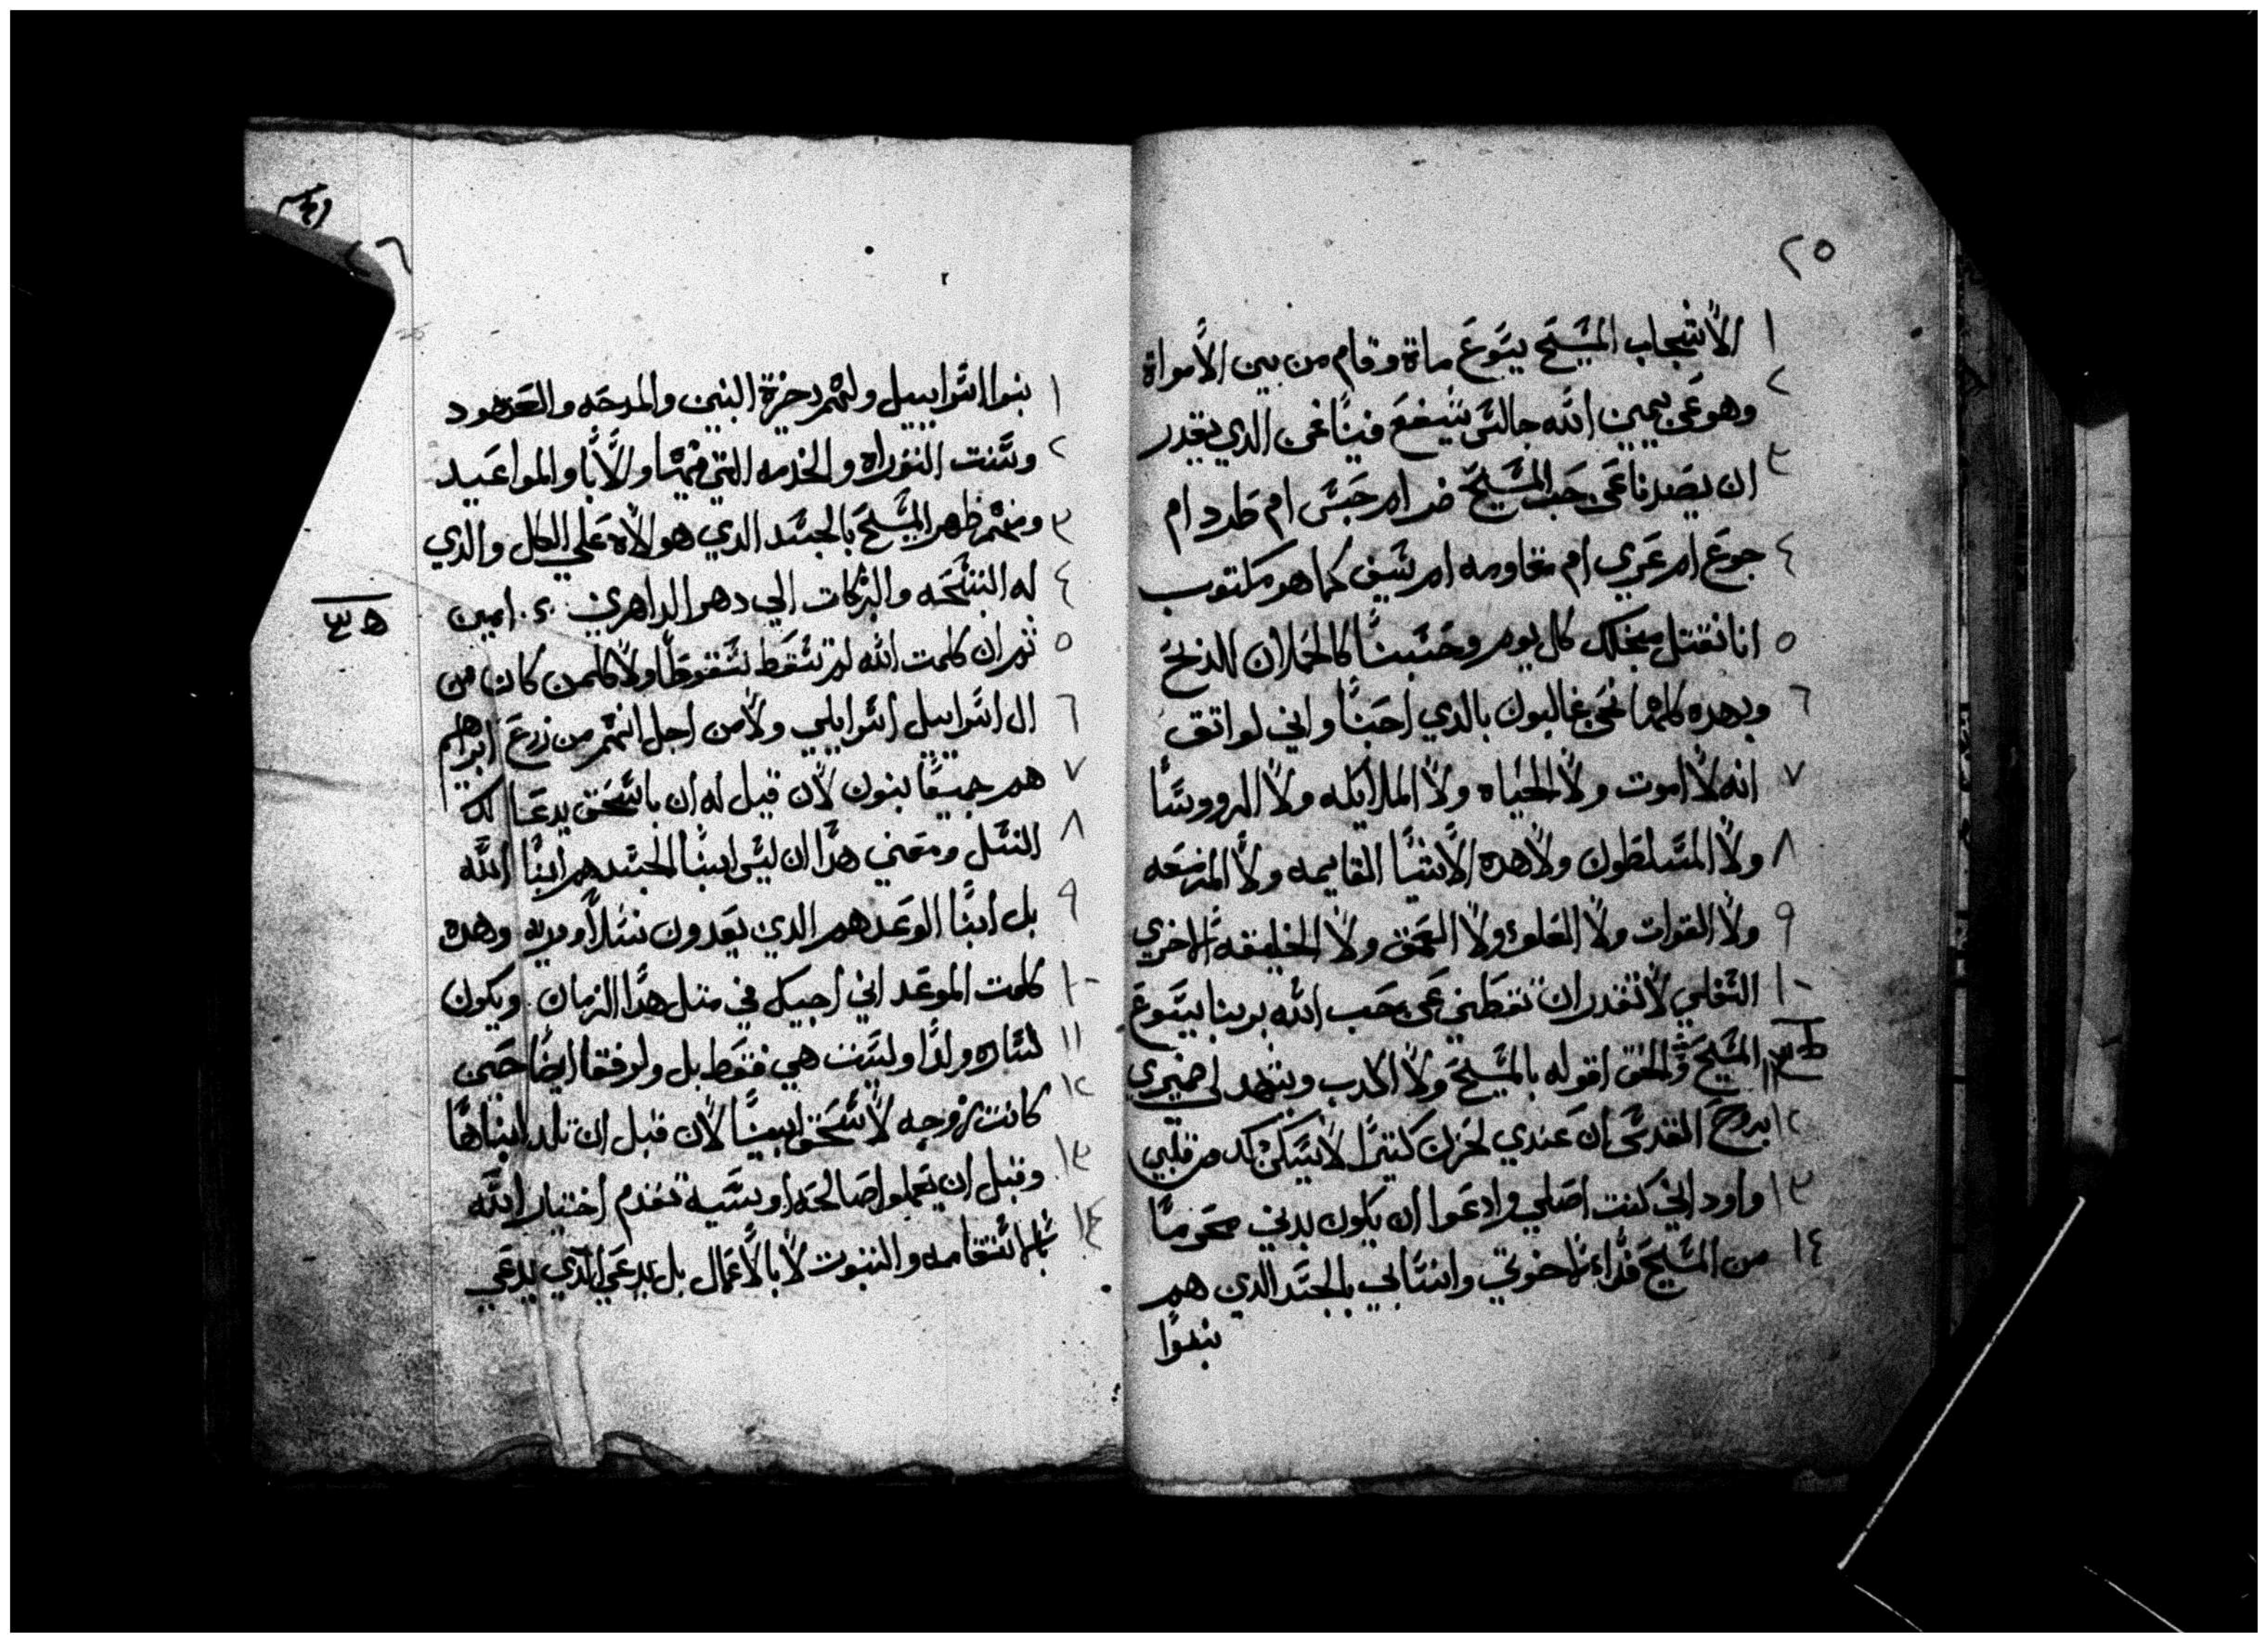 ٢٥
١ الانتجاب المسيح يسوع ماة وقام من بين الأمواة
٢ وهو عن يمين الله جالس شيفع فينا فمن الذي يقدر
٣ ان يصدنا عن حب المسيح ضر ام حبس ام طرد ام
٤ جوع ام عري ام مقاومه ام سيف كما هو مكتوب
٥ انا نقتل من اجلك كل يوم وحسبنا كالحملان للذبح
٦ وبهده كلها نحن غالبون بالدي احبنا واني لواتق
٧ انه لا اموت ولا الحياه ولا الملايكه ولا الرووسا
٨ ولا المسلطون ولا هده الاشيا القايمه ولا المزمعه
٩ ولا القوات ولا العلو ولا العمق ولا الخليقه الاخري
١٠ السفلي لا تقدر ان تقطني عن حب الله بربنا يسوع
١١ المسيح والحق اقوله بالمسيح ولا اكدب ويشهد لي ضميري
١٢ بروح القدس ان عندي لحزن كتيرا لا يسكن كد من قلبي
١٣ واود اني كنت اصلي وادعوا ان يكون بدني محروما
١٤ من المسيح فداء اخوتي وانسابي بالجسد الدي هم
بنوا
٢٦
١ بنوا اسراييل ولهم دخرة البنين والمدحه والعهود
٢ وسنت التوراه والخدمه التي فيها والابا والمواعيد
٣ ومنهم ظهر المسيح بالجسد الدي هو الاه علي الكل والدي
٤ له التسبحه والبركات الي دهر الداهرين امين
٥ تم ان كلمت الله لم تسقط سقوطا ولا كلمن كان من
٦ ال اسراييل اسراييلي ولا من اجل انهم من زرع ابراهيم
٧ هم جميعا بنون لان قيل له ان باسحق يدعا لك
٨ النسل ومعني هدا ان ليس ابنا الجسد هم ابنا الله
٩ بل ابنا الوعد هم الدين يعدون نسلا ودريه وهده
١٠ كلمت الموعد اني اجيك في متل هدا الزمان ويكون
١١ لساره ولدا وليست هي فقط بل ولرفقا ايضا حين
١٢ كانت زوجه لاسحق ابينا لان قبل ان تلد ابناها
١٣ وقبل ان يعملوا صالحه او سييه تقدم اختيار الله
١٤ بالاستقامه والتبوت لا بالاعمال بل يدعي الدي يدعي